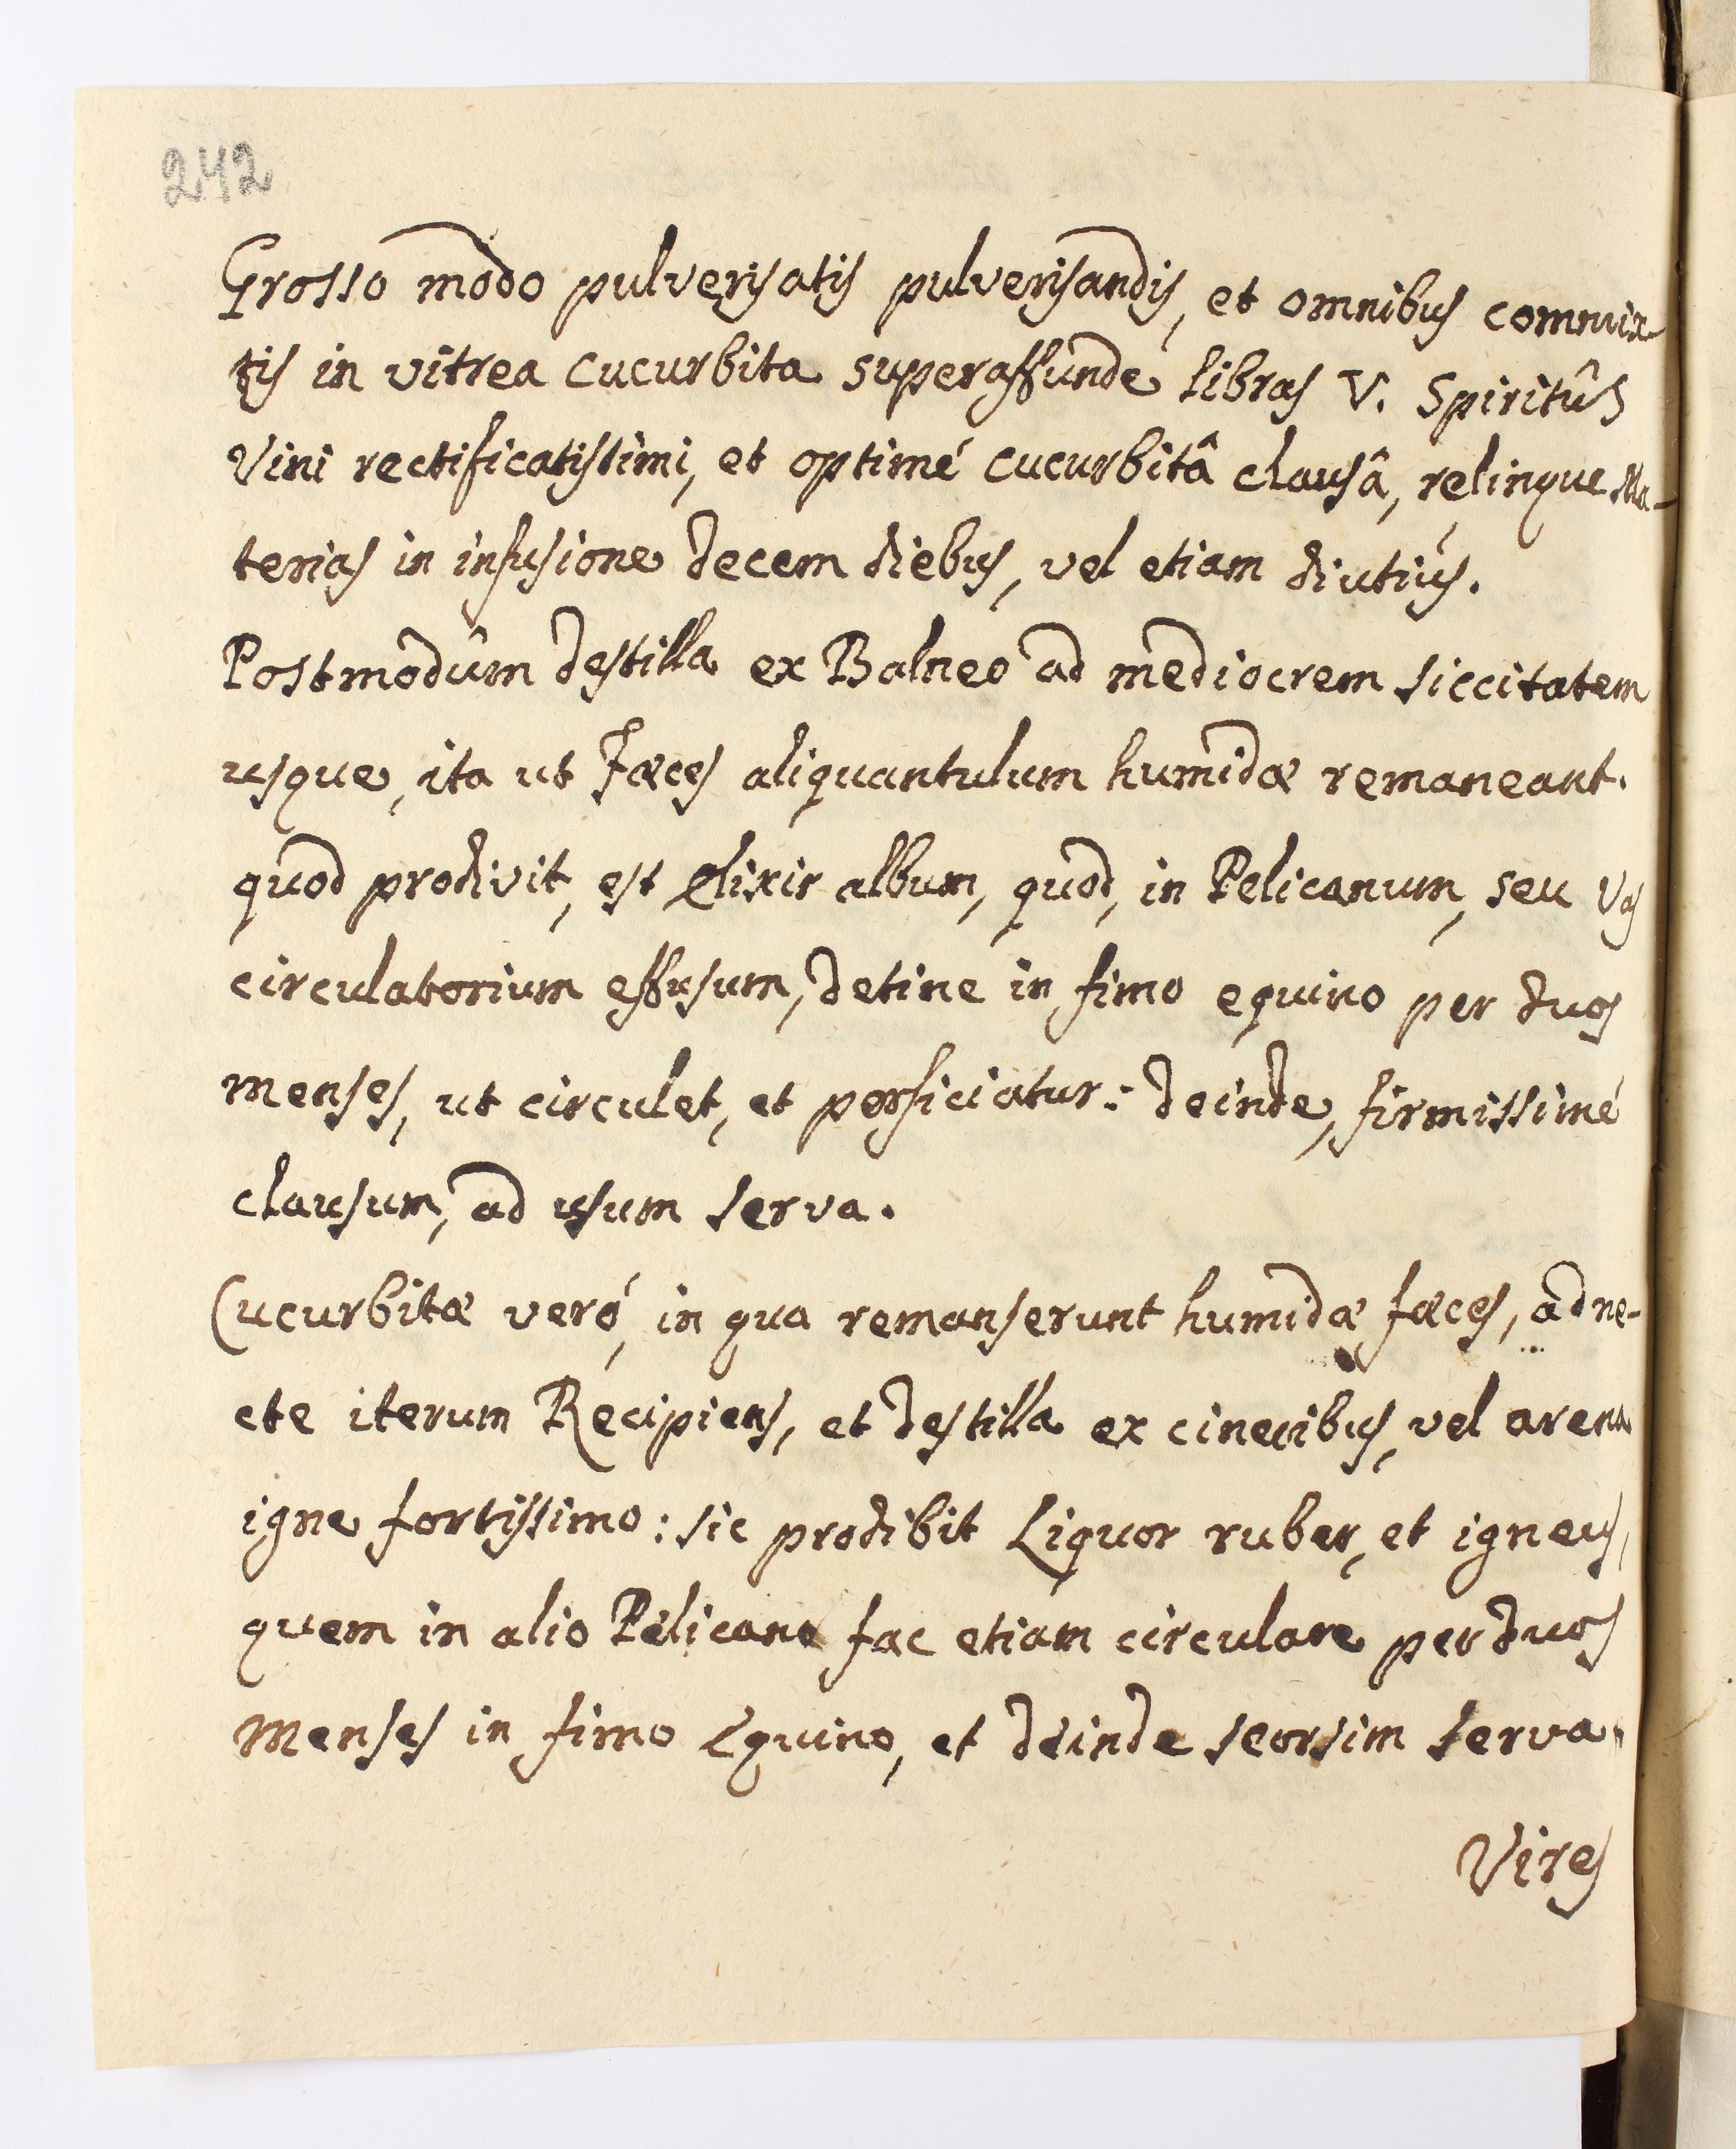 242
Grosso modo pulverisatis pulverisandis, et omnibus commix-
tis in vitrea cucurbita superaffunde libras V. Spiritûs
Vini rectificatissimi, et optimé cucurbitâ clausâ, relinque Ma-
terias in infusione decem diebus, vel etiam diutiús.
Postmodûm destilla ex Balneo ad mediocrem siccitatem
usque, ita ut Fæces aliquantulum humidæ remaneant.
quod prodivit, est Elixir album, quod, in Pelicanum, seu Vas
circulatorium effusum, detine in fimo equino per duos
menses, ut circulet, et perficiatur: deinde, firmissimé
clausum, ad usum serva.
Cucurbitæ veró, in qua remanserunt humidæ fæces, adne-
cte iterum Recipiens, et destilla ex cineribus, vel arena
igne fortissimo: sic prodibit Liquor ruber, et igneus,
quem in alio Pelicano fac etiam circulare per duos
Menses in fimo Equino, et deinde seorsim serva.
Vires